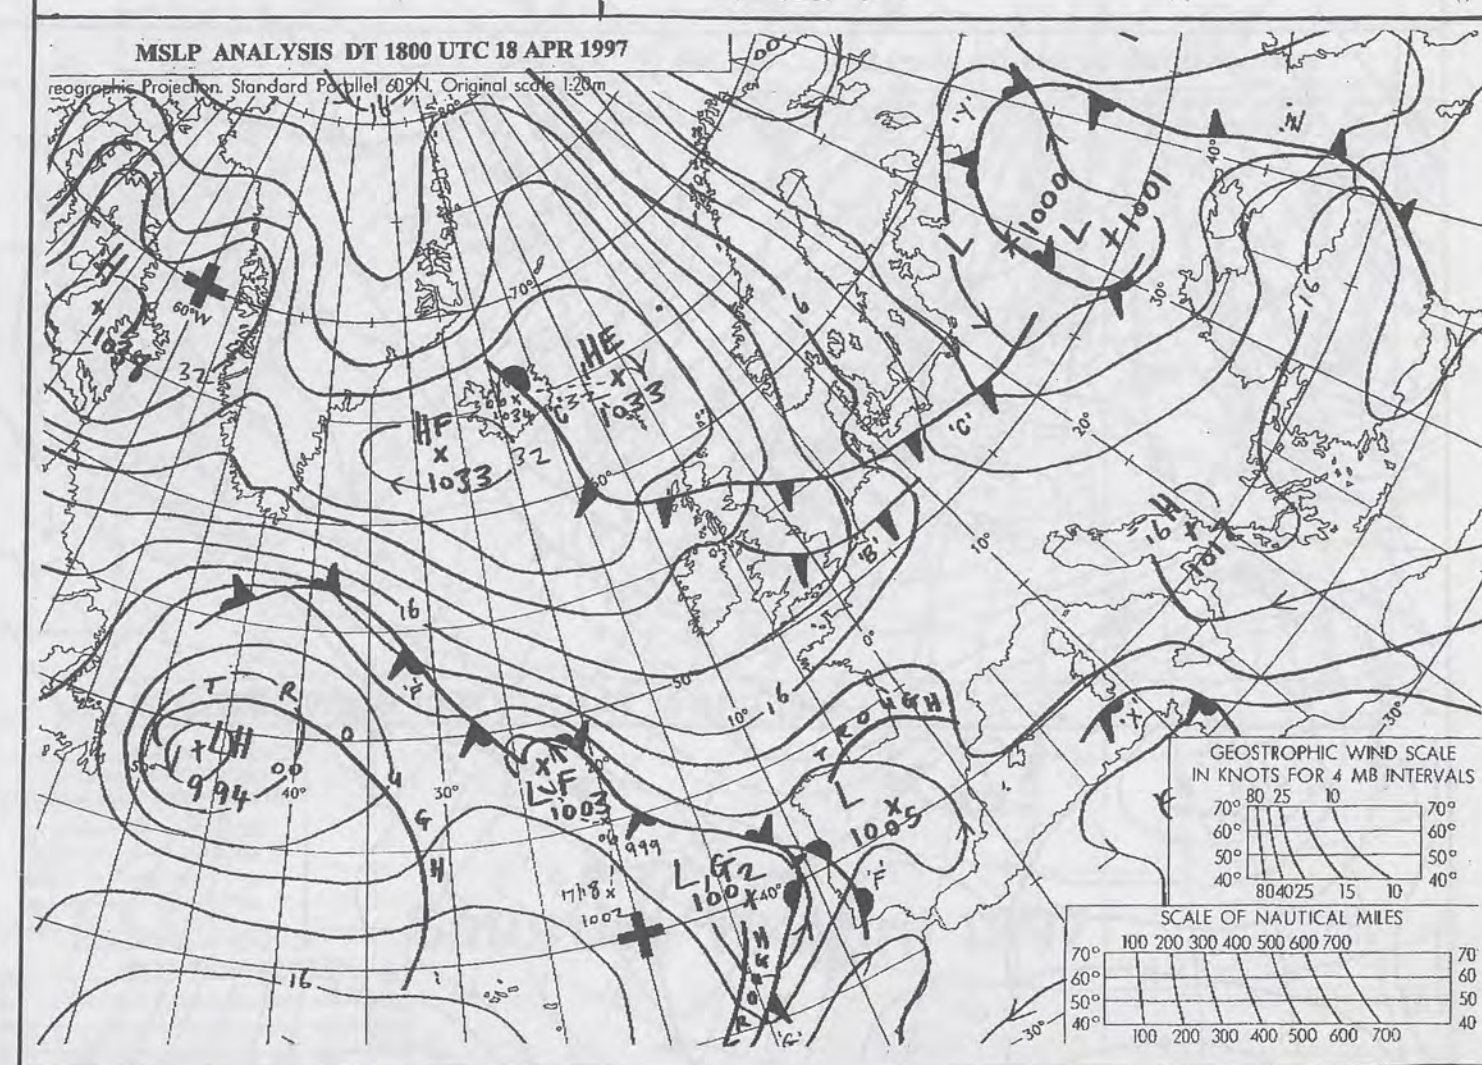 MSLP ANALYSIS DT 1800 UTC 18 APR 1997
reographic Projection. Standard Parallel 60°N. Original scale 1:20m
16
00
80°
'Y'
'Z'
40°
1000
L
L
1001
H
60°W
32
70°
HE
1033
'G'
1034
HF
1033
32
60°
16
16
30°
20°
'C'
10°
0°
'B'
H
16
1017
16
'F'
50°
10°
16
TROUGH
T R O U G H
LH
994
00
50°
40°
30°
20°
LF
1003
06
999
17/18
1002
L G2
100
40°
L
1005
'F'
TROUGH
'G'
'X'
30°
30°
GEOSTROPHIC WIND SCALE
IN KNOTS FOR 4 MB INTERVALS
80 25 10
70° 70°
60° 60°
50° 50°
40° 40°
80 40 25 15 10
SCALE OF NAUTICAL MILES
100 200 300 400 500 600 700
70° 70
60° 60
50° 50
40° 40
100 200 300 400 500 600 700